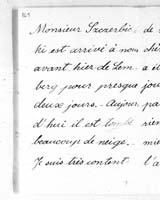 Monsieur Szczerbic- de
ki est arrivé à nous chez
avant hier de Lem- a il
berg pour presque jou
deux jours. - Aujour- pas
d'hui il est tombé rien
beaucoup de neige. - mie
Je suis très content l'a